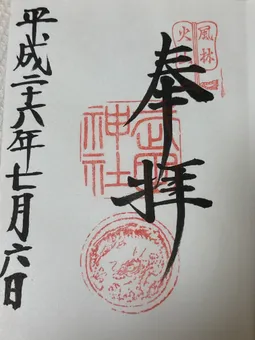 風林
火
奉拝
武田
神社
平成二十六年七月六日